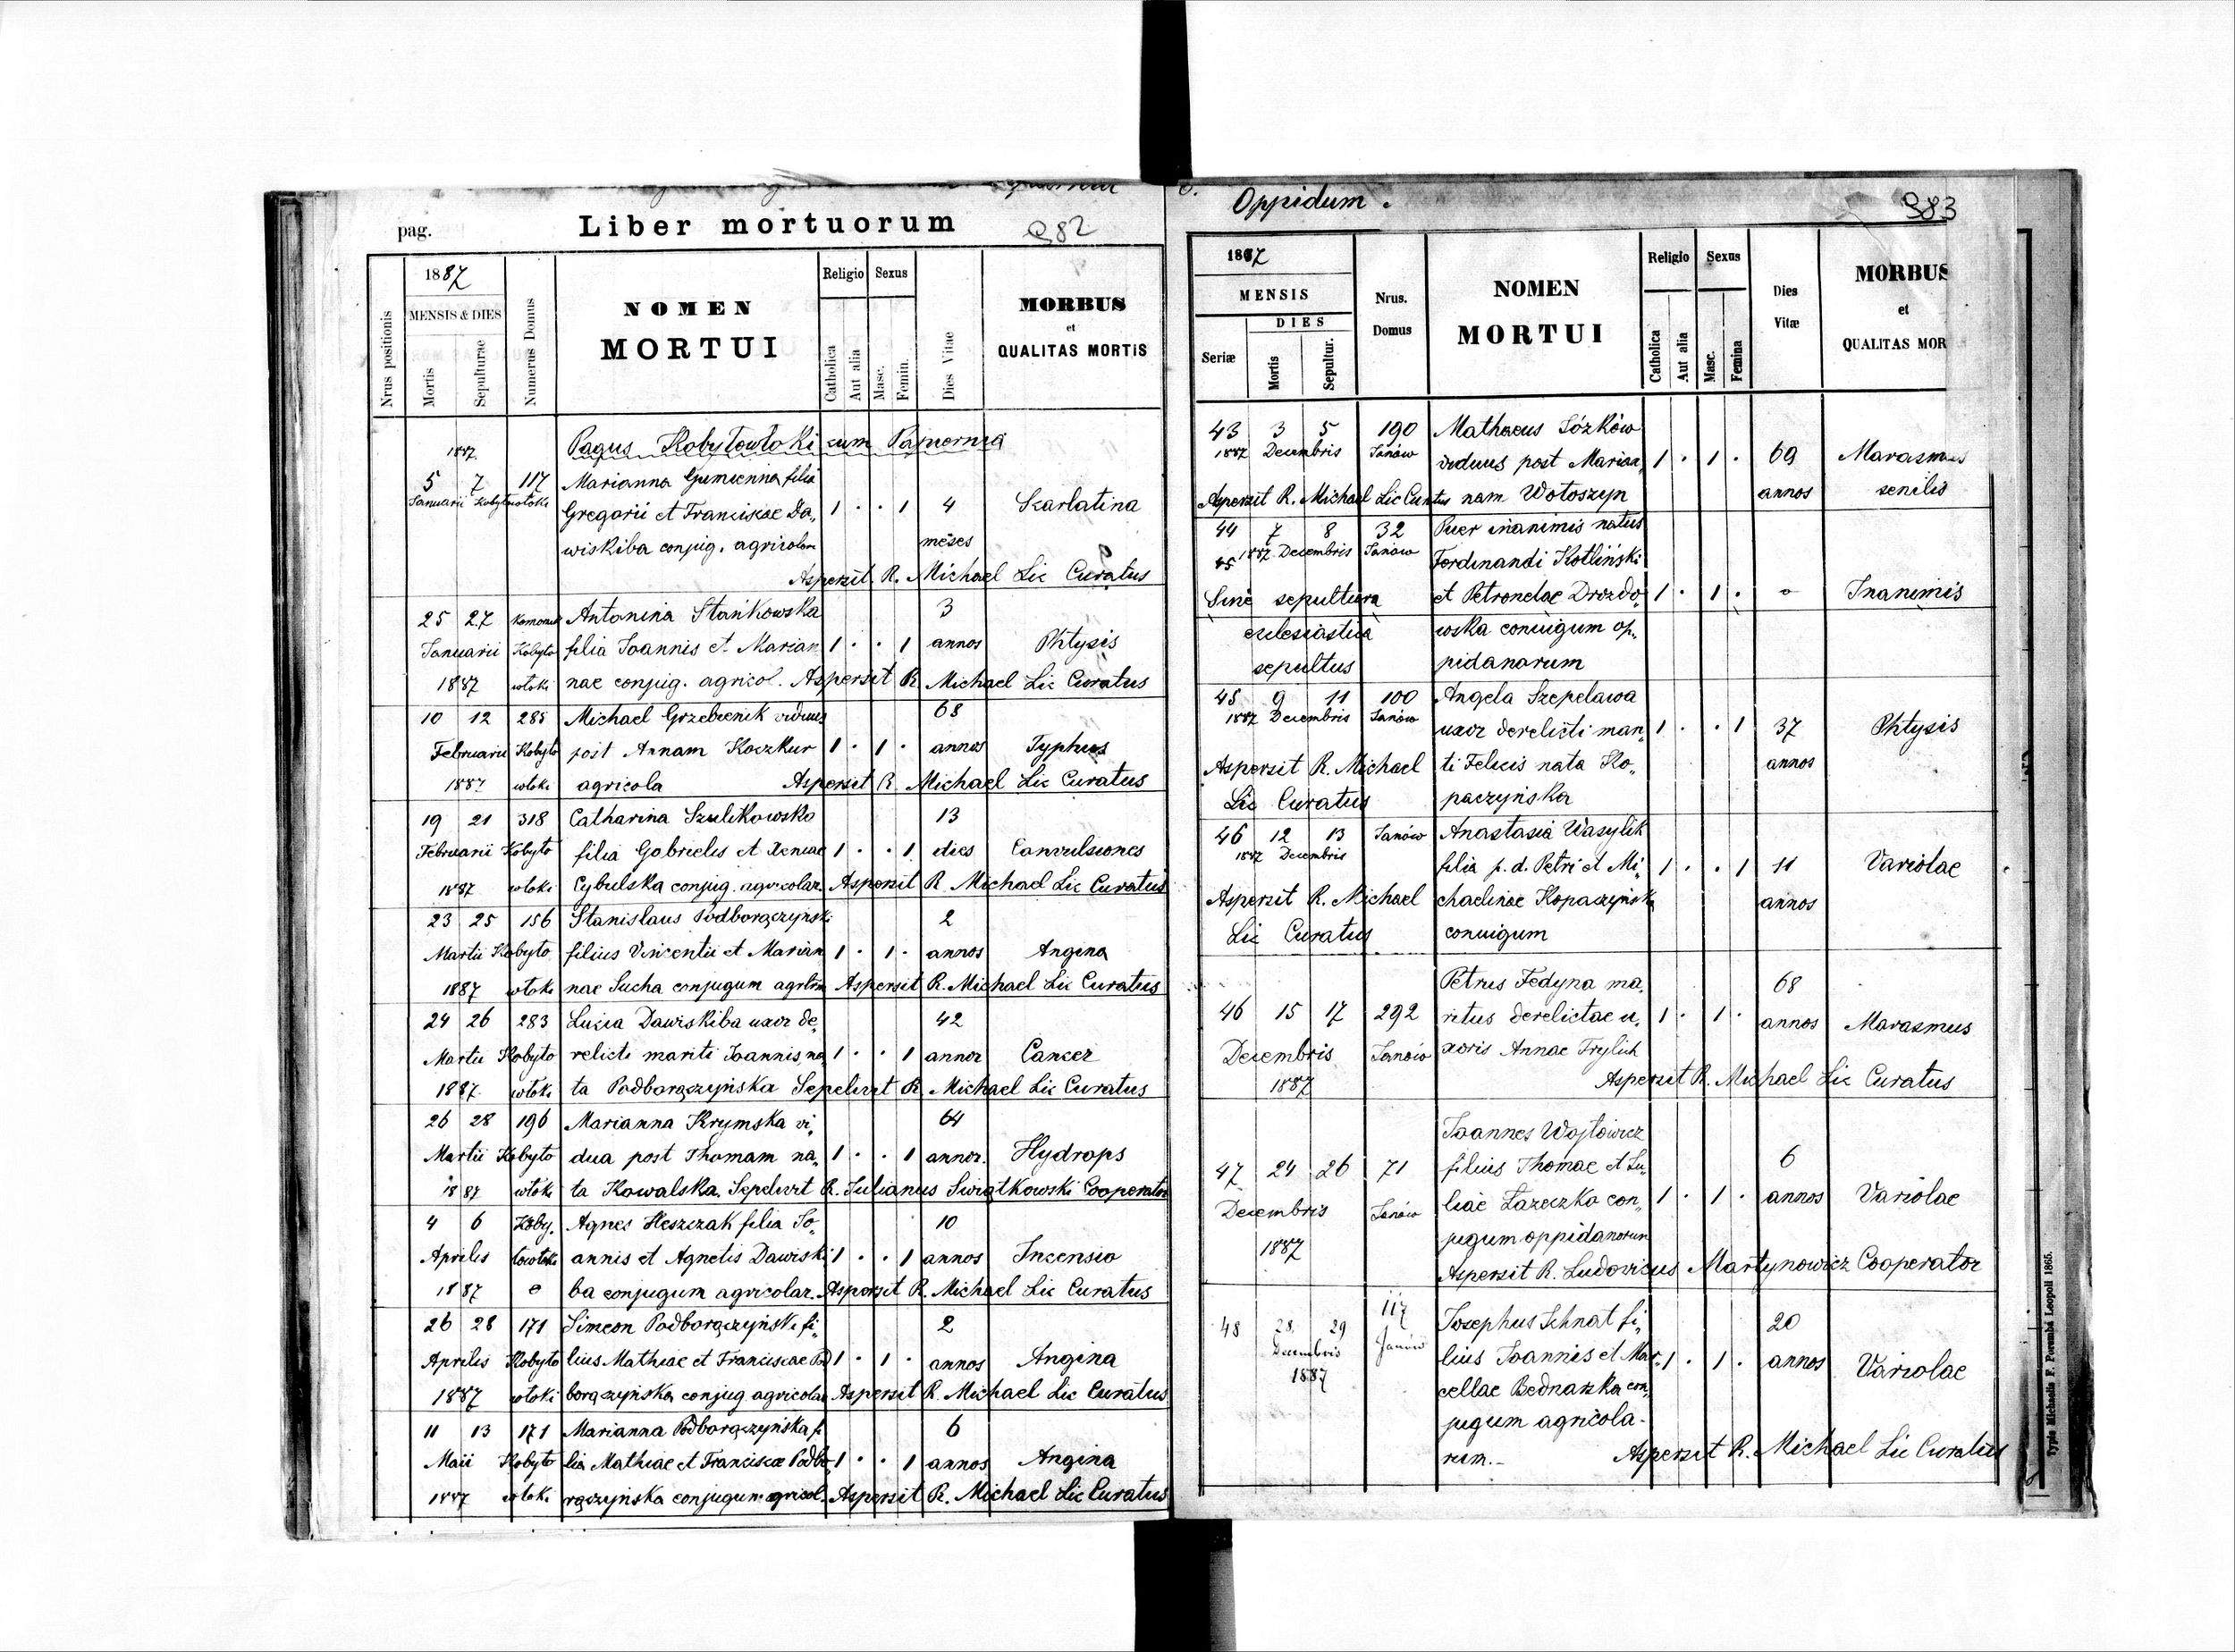 pag.
Liber mortuorum
982
1887
Nrus positionis
MENSIS & DIES
Mortis
Sepulturae
Numerus Domus
NOMEN
MORTUI
Religio
Catholica
Aut alia
Sexus
Masc.
Femin.
Dies Vitae
MORBUS
et
QUALITAS MORTIS
1887. Pagus Kobyłowłoki cum Papiernia
5 7 117 Marianna Gumienna filia
Januarii Kobyłowłoki Gregorii et Franciscae Da„ 1 · · 1 4 Scarlatina
wiskiba conjug. agricolar. meses
Aspersit R. Michael Lic Curatus
25 27 Antonina Stańkowska 3
Januarii Kobyło filia Joannis et Marian 1 · · 1 annos Phtysis
1887 włoki nae conjug. agricol. Aspersit R. Michael Lic Curatus
10 12 285 Michael Grzebienik viduus 68
Februarii Kobyło post Annam Koczkur 1 · 1 · annos Typhus
1887 włoki agricola Aspersit R. Michael Lic Curatus
19 21 318 Catharina Szulikowska 13
Februarii Kobyło filia Gabrielis et Xeniae 1 · · 1 dies Convulsiones
1887 włoki Cybulska conjug. agricolar. Aspersit R. Michael Lic Curatus
23 25 156 Stanislaus Podborączyński 2
Martii Kobyło filius Vincentii et Marian 1 · 1 · annos Angina
1887 włoki nae Sucha conjugum Aspersit R. Michael Lic Curatus
24 26 283 Lucia Dawiskiba uxor de„ 42
Martii Kobyło relicti mariti Joannis, na 1 · · 1 annor Cancer
1887. włoki ta Podborączyńska Sepelivit R. Michael Lic Curatus
26 28 196 Marianna Krymska vi„ 64
Martii Kobyło dua post Thomam na„ 1 · · 1 annor. Hydrops
1887 włoki ta Kowalska. Sepelivit R. Julianus Swiątkowski Cooperator
4 6 Koby. Agnes Heszczak filia Jo„ 10
Aprilis łowłoki annis et Agnetis Dawiski 1 · · 1 annos Incensio
1887 ba conjugum agricolar. Aspersit R. Michael Lic Curatus
26 28 171 Simeon Podborączyński fi„ 2
Aprilis Kobyło lius Mathiae et Franciscae Pod 1 · 1 · annos Angina
1887 włoki borączyńska conjug. agricolar Aspersit R. Michael Lic Curatus
11 13 171 Marianna Podborączyńska fi 6
Maii Kobyło lia Mathiae et Franciscae Podbo 1 · · 1 annos Angina
1887 włoki rączyńska conjugum agricol. Aspersit R. Michael Lic Curatus
Oppidum.
983
1887
MENSIS
Seriæ
DIES
Mortis
Sepultur.
Nrus.
Domus
NOMEN
MORTUI
Religio
Catholica
Aut alia
Sexus
Masc.
Femina
Dies
Vitæ
MORBUS
et
QUALITAS MOR
43 3 5 190 Mathaeus Józków
1887 Decembris Janów viduus post Marian„ 1 · 1 · 69 Marasmus
Aspersit R. Michael Lic Curatus nam Wołoszyn annos senilis
44 7 8 32 Puer inanimis natus
45 1887 Decembris Janów Ferdinandi Kotliński
Sine sepultura et Petronelae Drozdo„ 1 · 1 · Inanimis
eclesiastica wska coniugum op„
sepultus pidanorum
45 9 11 100 Angela Szepelawa
1887 Decembris Janów uxor derelicti mari„ 1 · · 1 37 Phtysis
Aspersit R. Michael ti Felicis nata Ko„ annos
Lic Curatus paczyńska
46 12 13 Janów Anastasia Wasylik
1887 Decembris filia p. d. Petri et Mi„ 1 · · 1 11 Variolae
Aspersit R. Michael chaelinae Kopaczyńsk annos
Lic Curatus coniugum
Petrus Fedyna ma„ 68
46 15 17 292 ritus derelictae u„ 1 · 1 · annos Marasmus
Decembris Janów xoris Annae Frylich
1887 Aspersit R. Michael Lic Curatus
Joannes Wojtowicz
47 24 26 71 filius Thomae et Ju„ 6
Decembris Janów liae Łazeczko con„ 1 · 1 · annos Variolae
1887 jugum oppidanorum
Aspersit R. Ludovicus Martynowicz Cooperator
48 28 29 117 Josephus Schnat fi„ 20
Decembris Janów lius Joannis et Mar„ 1 · 1 · annos Variolae
1887 cellae Bednarska con„
jugum agricola-
rum. - Aspersit R. Michael Lic Curatus
Typis Michaelis F. Poremba Leopoli 1865.